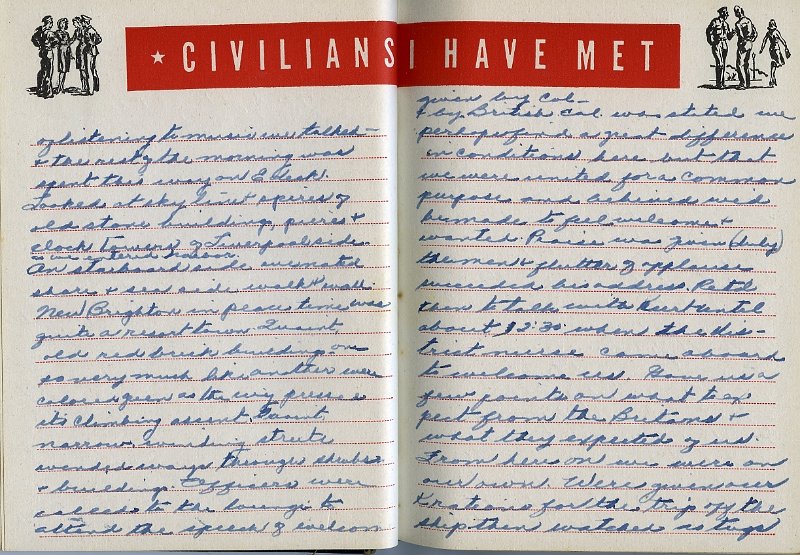 ★ CIVILIANS I HAVE MET
of listening to music we talked -
& the rest of the morning was
spent this way on E deck.
Looked at sky line spires of
old stone building, piers &
clock towers of Liverpool side.
as we entered harbor.
On starboard side we noted
shore & sea side walk & wall.
New Brighton in peace time was
quite a resort town. Quaint
old red brick buildings one
so very much like another were
colored green as the ivy pressed
its climbing assent. Quaint
narrow, winding streets
wended ways through shrubs
& buildings. Officers were
called to the lounge to
attend the speech of welcome
given by Col -
& by British Col. was stated we
perhaps find a great difference
in conditions here but that
we were united for a common
purpose and believed we'd
be made to feel welcome &
wanted. Praise was given (duly)
the men & flutter of applause
succeeded his address. Ret'd
then to talk with Kurt until
about 12:30 when the dis-
trict nurse came aboard
to welcome us. Gave us a
few points on what to ex
pect from the Britons &
what they expected of us.
From here on we were on
our own. Were given our
K rations for the trip off the
ship then watched as tugs